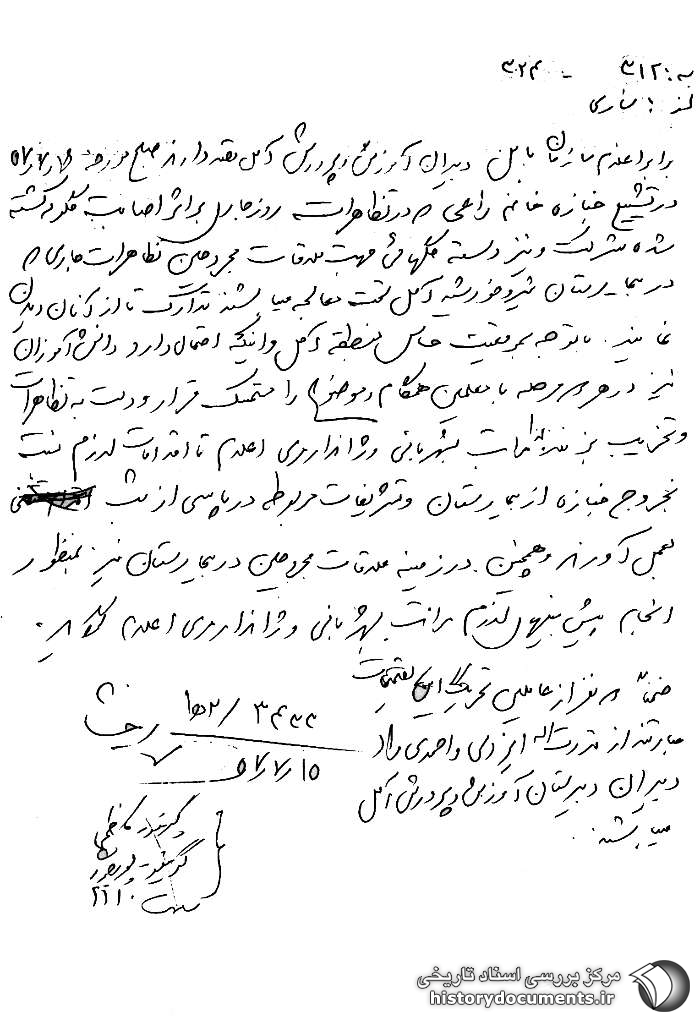 به: ۳۱۲ - ۳۲۴
از: ساری
برابر اعلام سازمان بابل دبیران آموزش و پرورش آمل قصد دارند صبح مورخه ۵۷/۷/۱۶
در تشییع جنازه خانم که در تظاهرات روز بر اثر اصابت گلوله کشته
شده شرکت و نیز دسته گلهائی جهت ملاقات مجروحین تظاهرات جاری که
در بیمارستان شیر و خورشید آمل تحت معالجه میباشند تدارک تا از آنان دیدن
نمایند. با توجه بموقعیت حساس منطقه آمل و اینکه احتمال دارد دانش آموزان
نیز در هر دو مرحله با معلمین همگام و موضوع را مستمسک قرار و دست به تظاهرات
و تخریب بزنند مراتب بشهربانی و ژاندارمری اعلام تا اقدامات لازم نسبت
بخروج جنازه از بیمارستان و تشریفات مربوطه در پاسی از شب
بعمل آورند و همچنین در زمینه ملاقات مجروحین در بیمارستان نیز بمنظور
انجام پیش بینیهای لازم مراتب بشهربانی و ژاندارمری اعلام گردید.
ضمناً دو نفر از عاملین تحریک این تصمیمات
عبارتند از قدرت اله ایزدی و احمدی راد
دبیران دبیرستان آموزش و پرورش آمل
میباشند.
۵۷/۷/۱۵